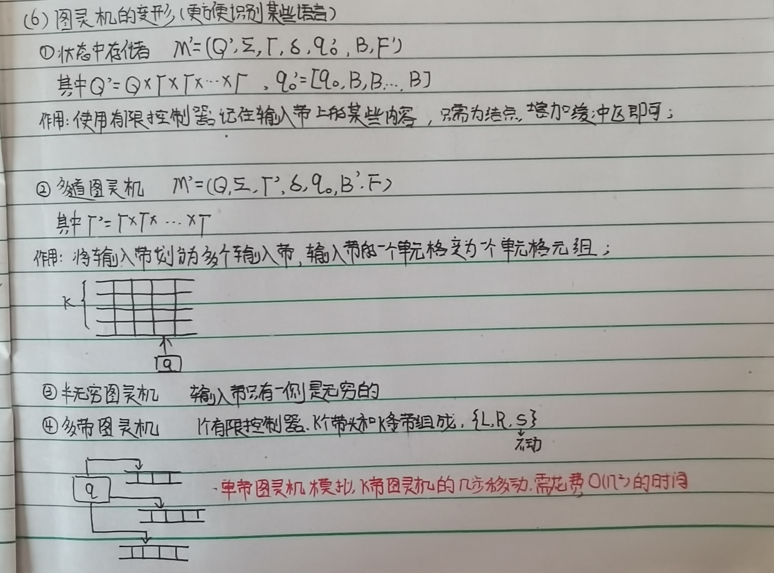 (6) 图灵机的变形(更方便识别某些语言)
①状态中存储 M'=(Q',Σ,Γ,δ,q₀',B,F')
其中Q'=Q×Γ×Γ×…×Γ, q₀'=[q₀,B,B…,B]
作用:使用有限控制器记住输入带上的某些内容,只需为结点增加缓冲区即可;
②多道图灵机 M'=(Q,Σ,Γ',δ,q₀,B',F)
其中Γ'=Γ×Γ×…×Γ
作用:将输入带划分为多个输入带,输入带的一个单元格变为一个单元格元组;
K
q
③半无穷图灵机 输入带只有一侧是无穷的
④多带图灵机 1个有限控制器、K个带头和K条带组成,{L,R,S}
不动
q
·单带图灵机模拟K带图灵机的n步移动,需花费O(n²)的时间